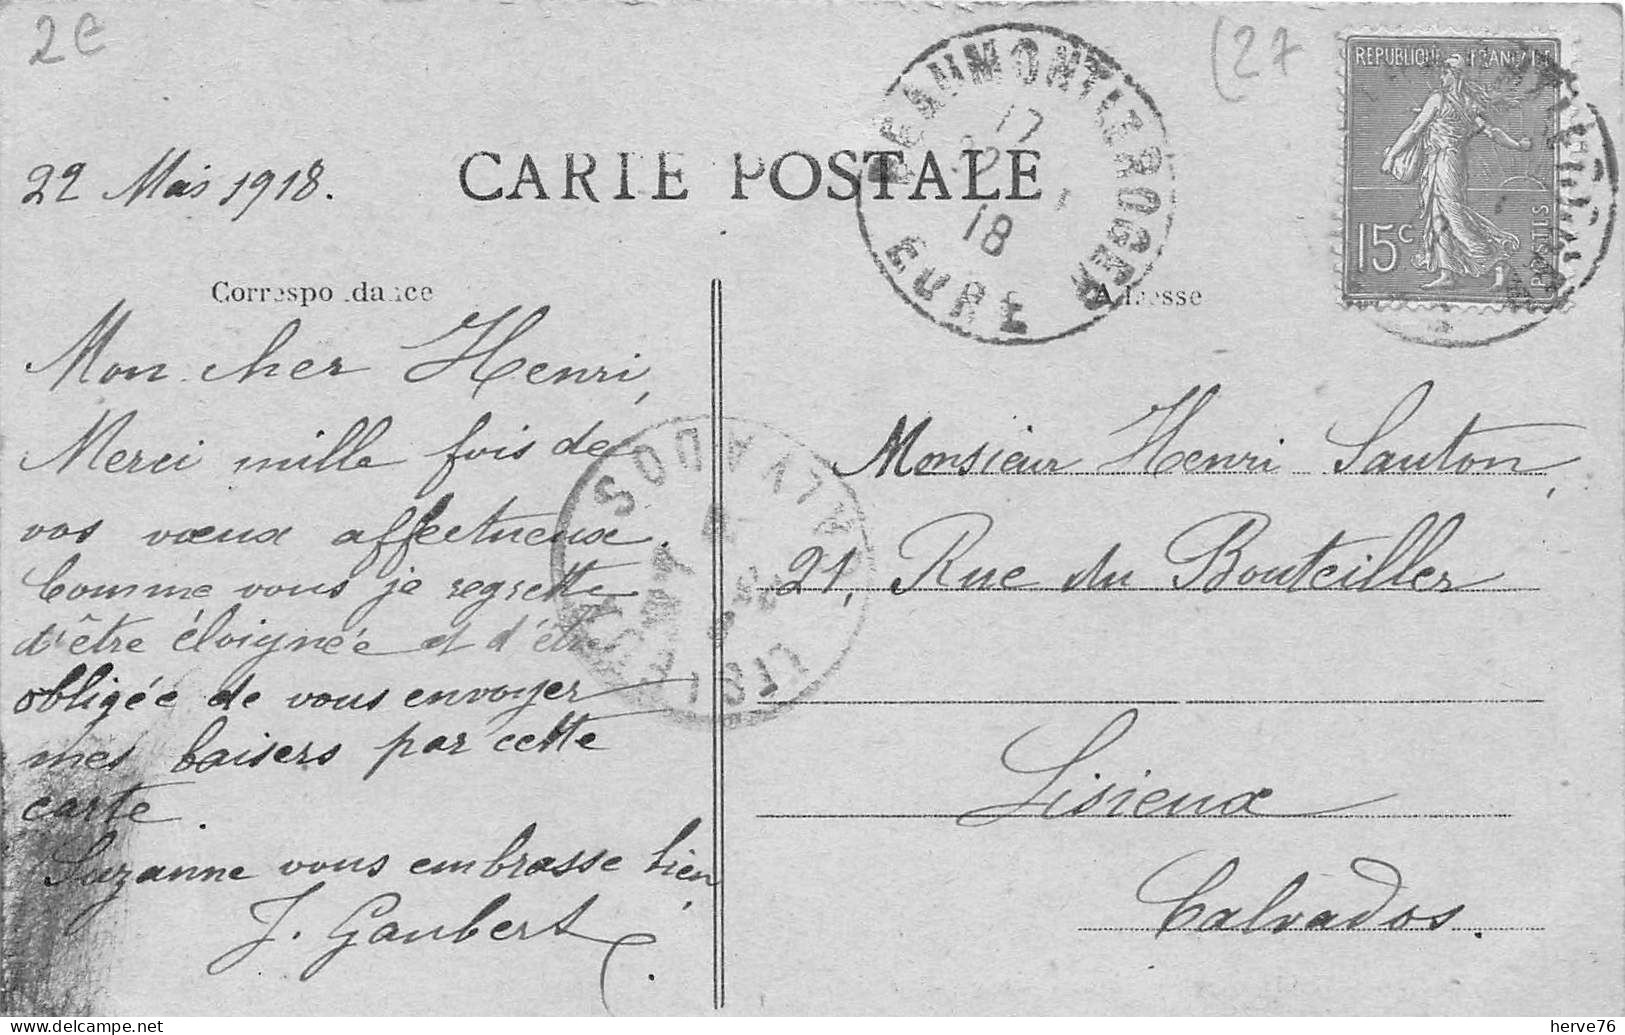 2€
(27
22 Mai 1918.
CARTE POSTALE
BEAUMONT LE ROGER
17
18
EURE
REPUBLIQUE FRANÇAISE
15c
POSTES
Correspondance
Adresse
Mon cher Henri,
Merci mille fois de
vos vœux affectueux.
Comme vous je regrette
d'être éloignée et d'être
obligée de vous envoyer
mes baisers par cette
carte.
Suzanne vous embrasse bien,
J. Gaubert
CALVADOS
LISIEUX
Monsieur Henri Sauton,
21, Rue du Bouteiller
Lisieux
Calvados.
delcampe.net
herve76